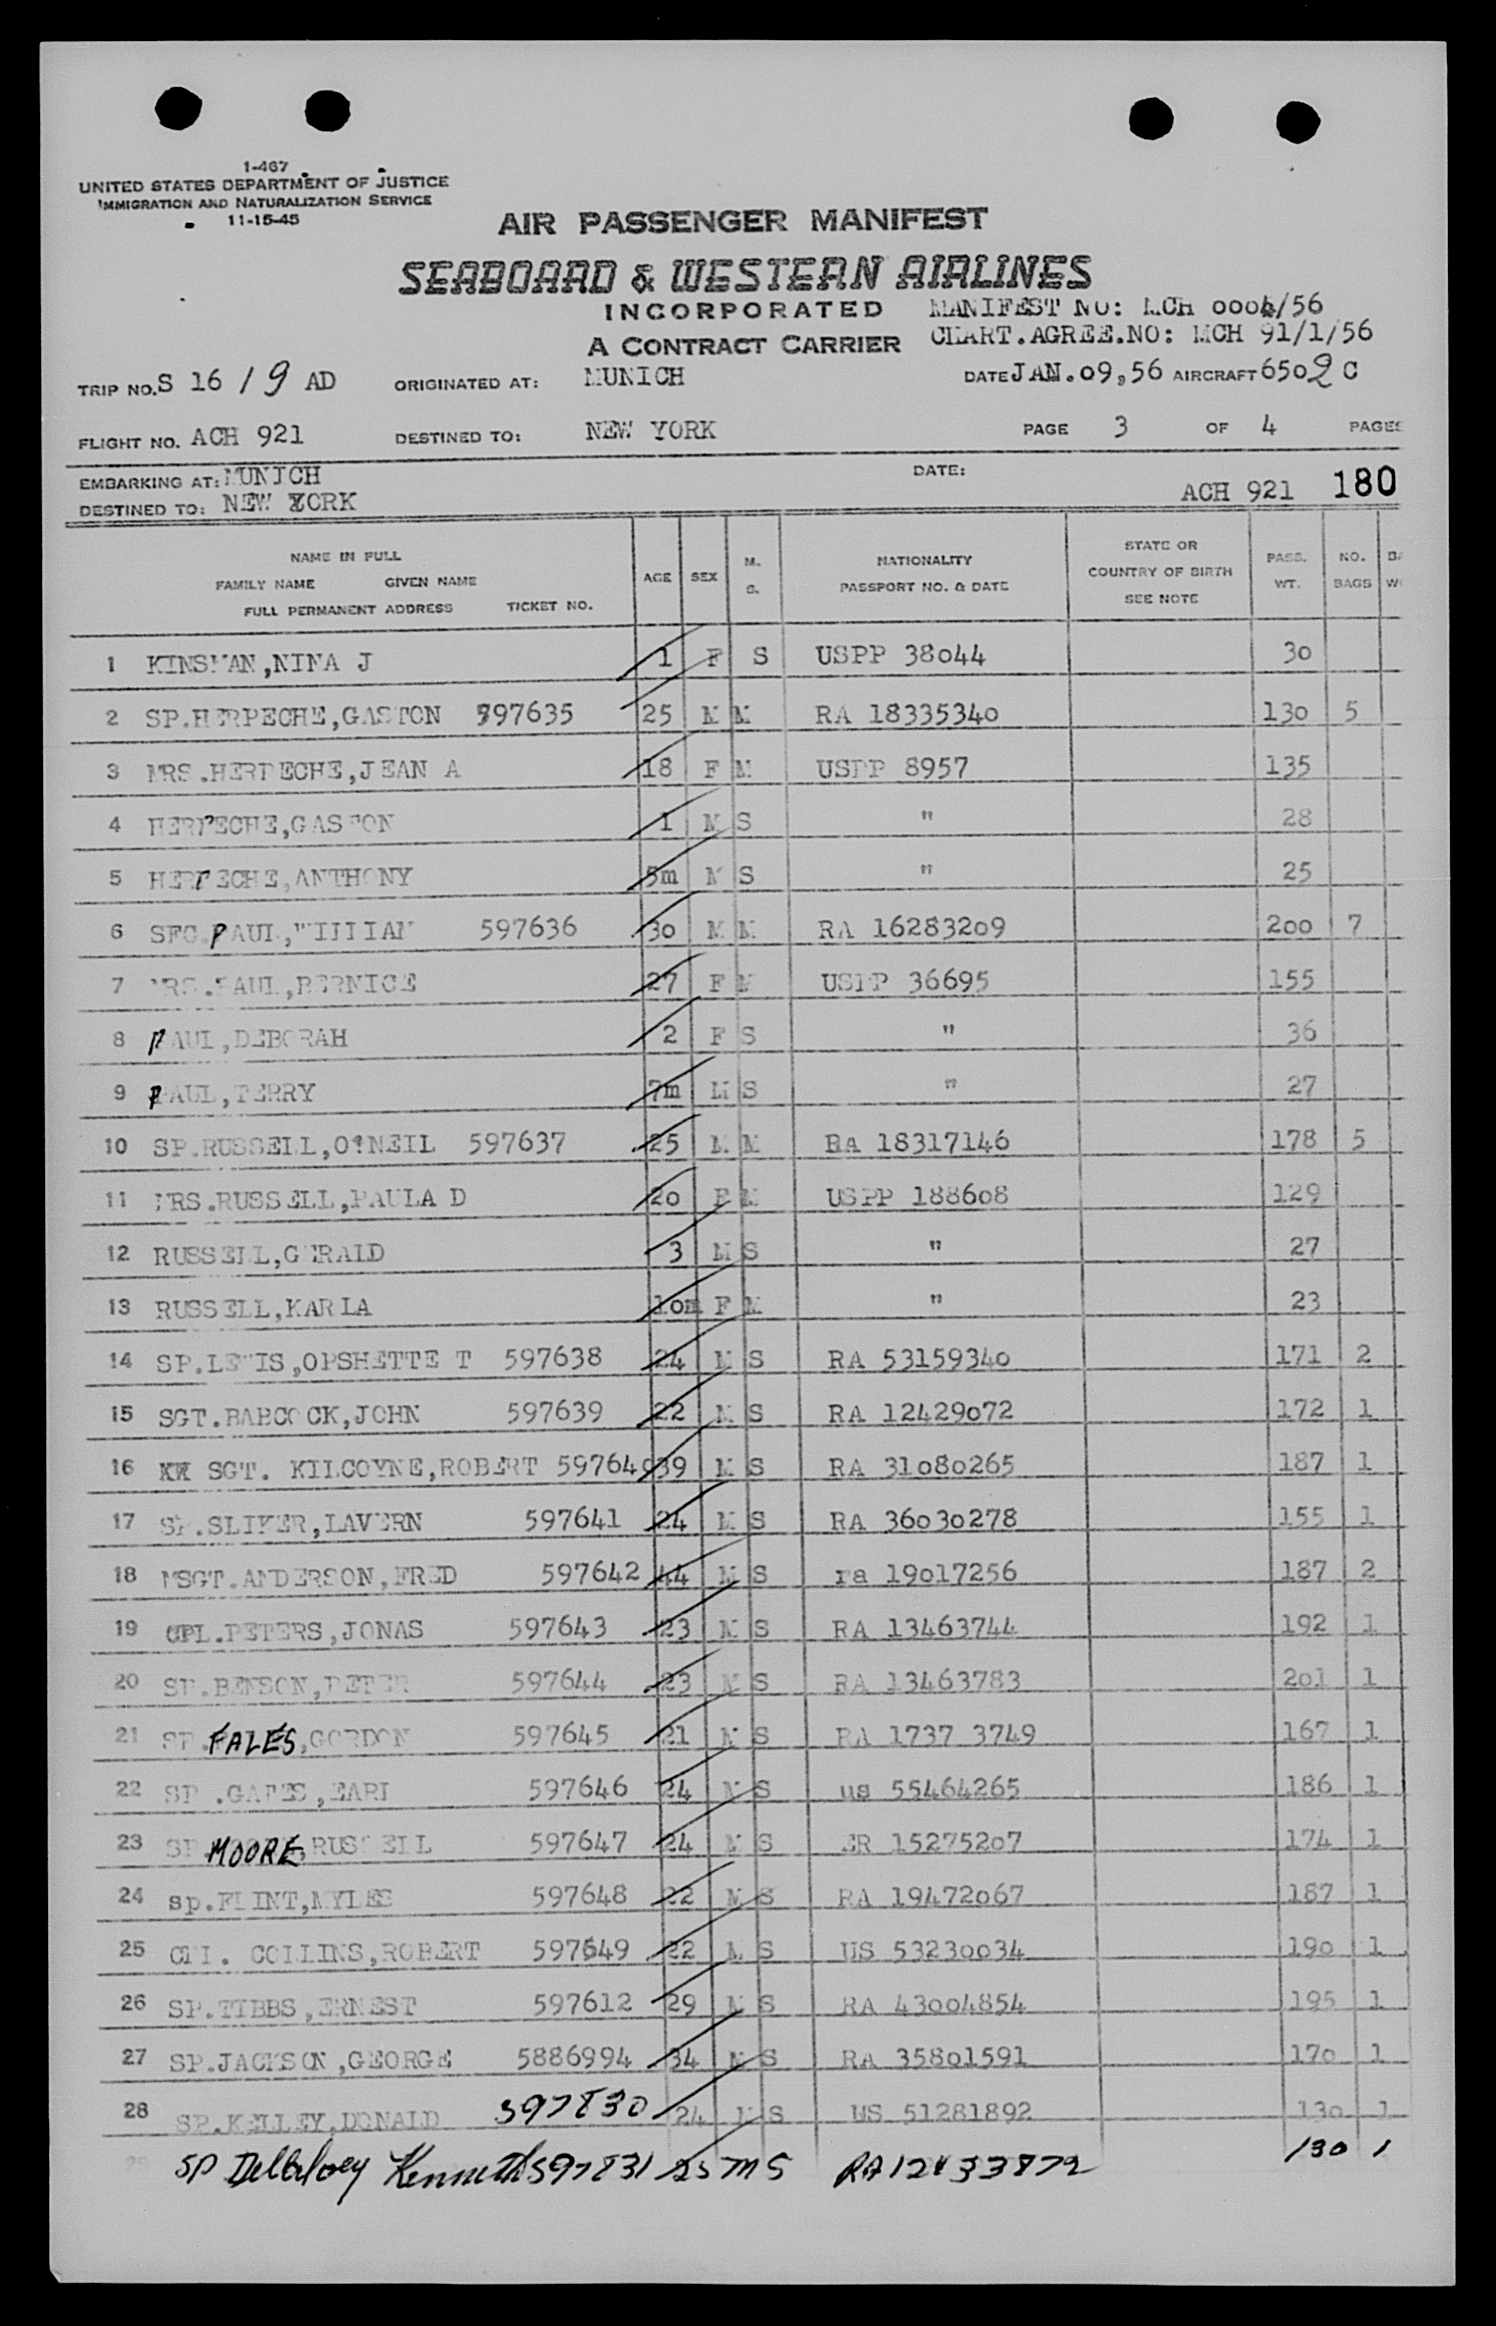 1-467
UNITED STATES DEPARTMENT OF JUSTICE
IMMIGRATION AND NATURALIZATION SERVICE
11-15-45
AIR PASSENGER MANIFEST
SEABOARD & WESTERN AIRLINES
INCORPORATED MANIFEST NO: MCH 0004/56
A CONTRACT CARRIER CHART.AGREE.NO: MCH 91/1/56
TRIP NO. S 16 / 9 AD ORIGINATED AT: MUNICH DATE JAN.09,56 AIRCRAFT 6502 C
FLIGHT NO. ACH 921 DESTINED TO: NEW YORK PAGE 3 OF 4 PAGES
EMBARKING AT: MUNICH DATE:
DESTINED TO: NEW YORK ACH 921 180
NAME IN FULL
FAMILY NAME GIVEN NAME
FULL PERMANENT ADDRESS TICKET NO.
AGE SEX M. S.
NATIONALITY
PASSPORT NO. & DATE
STATE OR
COUNTRY OF BIRTH
SEE NOTE
PASS. WT. NO. BAGS
1 KINSMAN,NINA J 1 F S USPP 38044 30
2 SP.HERPECHE,GASTON 597635 25 M M RA 18335340 130 5
3 MRS.HERPECHE,JEAN A 18 F M USPP 8957 135
4 HERPECHE,GASTON 1 M S " 28
5 HERPECHE,ANTHONY 5m M S " 25
6 SFC.PAUL,WILLIAM 597636 30 M M RA 16283209 200 7
7 MRS.PAUL,BERNICE 27 F M USPP 36695 155
8 PAUL,DEBORAH 2 F S " 36
9 PAUL,TERRY 7m M S " 27
10 SP.RUSSELL,O'NEIL 597637 25 M M RA 18317146 178 5
11 MRS.RUSSELL,PAULA D 20 F M USPP 188608 129
12 RUSSELL,GERALD 3 M S " 27
13 RUSSELL,KARLA 10m F M " 23
14 SP.LEWIS,OPSHETTE T 597638 24 M S RA 53159340 171 2
15 SGT.BABCOCK,JOHN 597639 22 M S RA 12429072 172 1
16 SGT. KILCOYNE,ROBERT 597640 39 M S RA 31080265 187 1
17 SP.SLIKER,LAVERN 597641 24 M S RA 36030278 155 1
18 MSGT.ANDERSON,FRED 597642 44 M S ra 19017256 187 2
19 CPL.PETERS,JONAS 597643 23 M S RA 13463744 192 1
20 SP.BENSON,PETER 597644 23 M S RA 13463783 201 1
21 SP.FALES,GORDON 597645 21 M S RA 1737 3749 167 1
22 SP .GATES,EARL 597646 24 M S us 55464265 186 1
23 SP MOORE RUSSELL 597647 24 M S ER 15275207 174 1
24 sp.FLINT,MYLES 597648 22 M S RA 19472067 187 1
25 CPL. COLLINS,ROBERT 597649 22 M S US 53230034 190 1
26 SP.TIBBS,ERNEST 597612 29 M S RA 43004854 195 1
27 SP.JACKSON,GEORGE 5886994 34 M S RA 35801591 170 1
28 SP.KELLEY,DONALD 597830 24 M S US 51281892 130 1
29 SP Kenneth 597831 25 M S 130 1